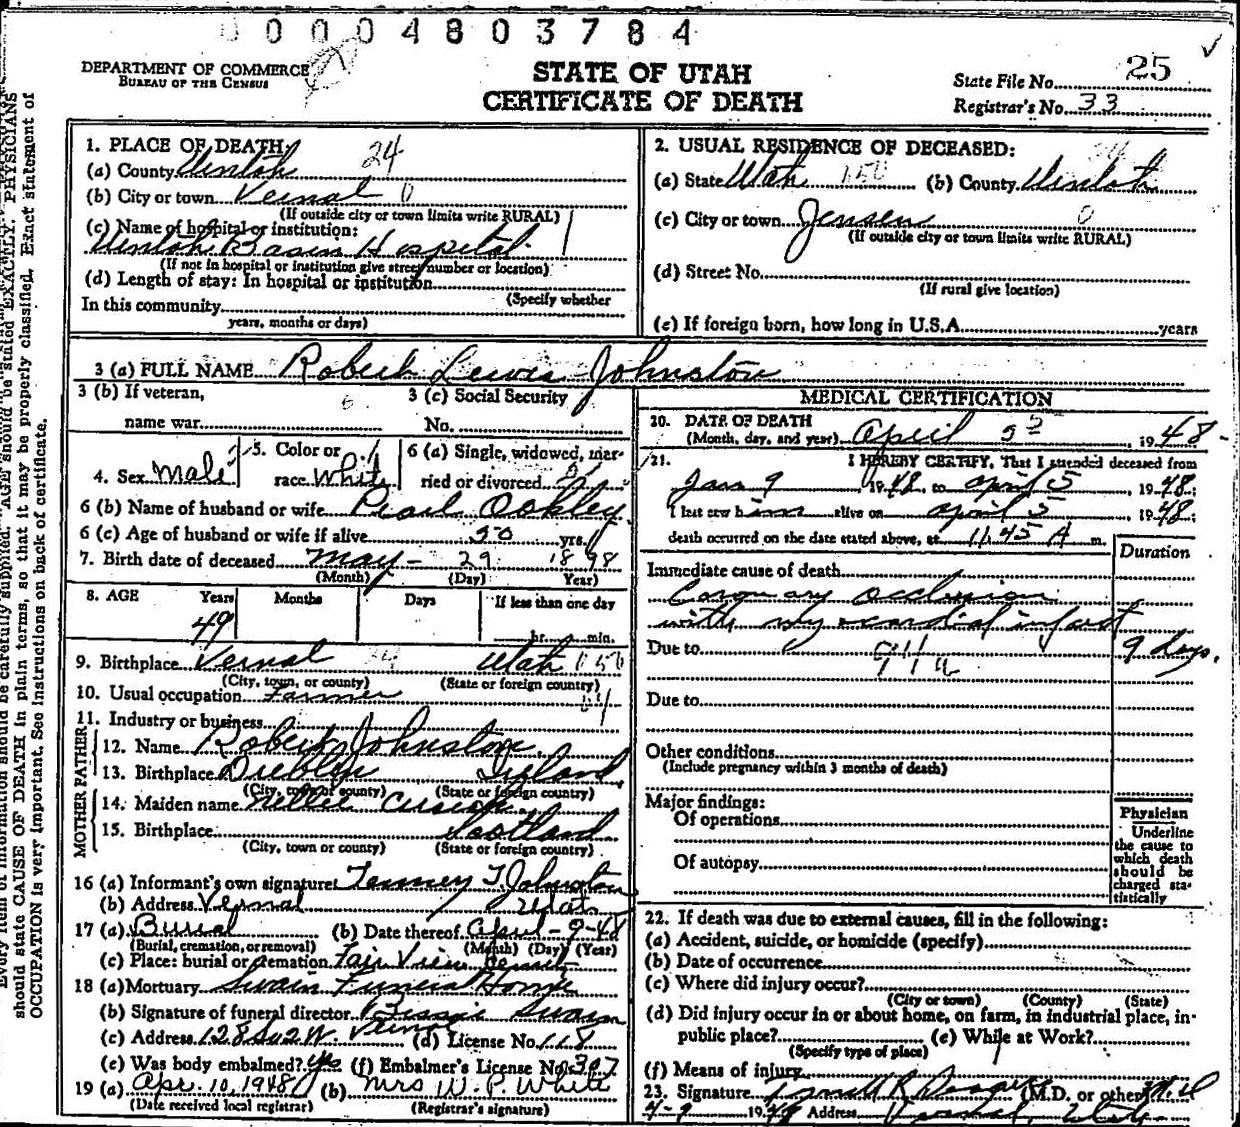 00004803784
DEPARTMENT OF COMMERCE
BUREAU OF THE CENSUS
STATE OF UTAH
CERTIFICATE OF DEATH
State File No. 25
Registrar's No. 33
Every item of information should be carefully supplied. AGE should be stated EXACTLY. PHYSICIANS
should state CAUSE OF DEATH in plain terms, so that it may be properly classified. Exact statement of
OCCUPATION is very important. See instructions on back of certificate.
1. PLACE OF DEATH:
24
(a) County Uintah
(b) City or town Vernal 0
(If outside city or town limits write RURAL)
(c) Name of hospital or institution:
Uintah Basin Hospital
(If not in hospital or institution give street number or location)
(d) Length of stay: In hospital or institution
(Specify whether
In this community
years, months or days)
2. USUAL RESIDENCE OF DECEASED:
(a) State Utah 150 (b) County Uintah
(c) City or town Jensen 0
(If outside city or town limits write RURAL)
(d) Street No.
(If rural give location)
(e) If foreign born, how long in U.S.A. years
3 (a) FULL NAME Robert Lewis Johnston
3 (b) If veteran,
name war
3 (c) Social Security
No.
4. Sex Male
5. Color or
race White
6 (a) Single, widowed, mar-
ried or divorced
6 (b) Name of husband or wife Pearl Oakley
6 (c) Age of husband or wife if alive 50 yrs.
7. Birth date of deceased May - 29 1898
(Month) (Day) Year)
8. AGE Years Months Days If less than one day
49 hr. min.
9. Birthplace Vernal Utah 050
(City, town, or county) (State or foreign country)
10. Usual occupation Farmer
11. Industry or business
FATHER
12. Name Robert Johnston
13. Birthplace Dublin Ireland
(City, town or county) (State or foreign country)
MOTHER
14. Maiden name Nellie
15. Birthplace Scotland
(City, town or county) (State or foreign country)
16 (a) Informant's own signature: Johnston
(b) Address Vernal Utah
17 (a) Burial (b) Date thereof April - 9 - 48
(Burial, cremation, or removal) (Month) (Day) (Year)
(c) Place: burial or cremation Fair View Cemet
18 (a) Mortuary Swain Funeral Home
(b) Signature of funeral director Bessie Swain
(c) Address 128 So 2 W. Vernal (d) License No. 118
(e) Was body embalmed? yes (f) Embalmer's License No. 307
19 (a) Apr. 10, 1948 (b) Mrs W. P. White
(Date received local registrar) (Registrar's signature)
MEDICAL CERTIFICATION
20. DATE OF DEATH
(Month, day, and year) April 5, 1948
21. I HEREBY CERTIFY, That I attended deceased from
Jan 9, 1948, to April 5, 1948;
I last saw him alive on April 5, 1948;
death occurred on the date stated above, at 11:45 A m.
Duration
Immediate cause of death
Coronary occlusion
with myocardial infarct
Due to 94a 9 days.
Due to
Other conditions
(Include pregnancy within 3 months of death)
Major findings:
Of operations
Of autopsy
Physician
Underline
the cause to
which death
should be
charged sta-
tistically
22. If death was due to external causes, fill in the following:
(a) Accident, suicide, or homicide (specify)
(b) Date of occurrence
(c) Where did injury occur?
(City or town) (County) (State)
(d) Did injury occur in or about home, on farm, in industrial place, in-
public place? (e) While at Work?
(Specify type of place)
(f) Means of injury
23. Signature (M.D. or other) M.D
4-9 1948 Address Vernal, Utah